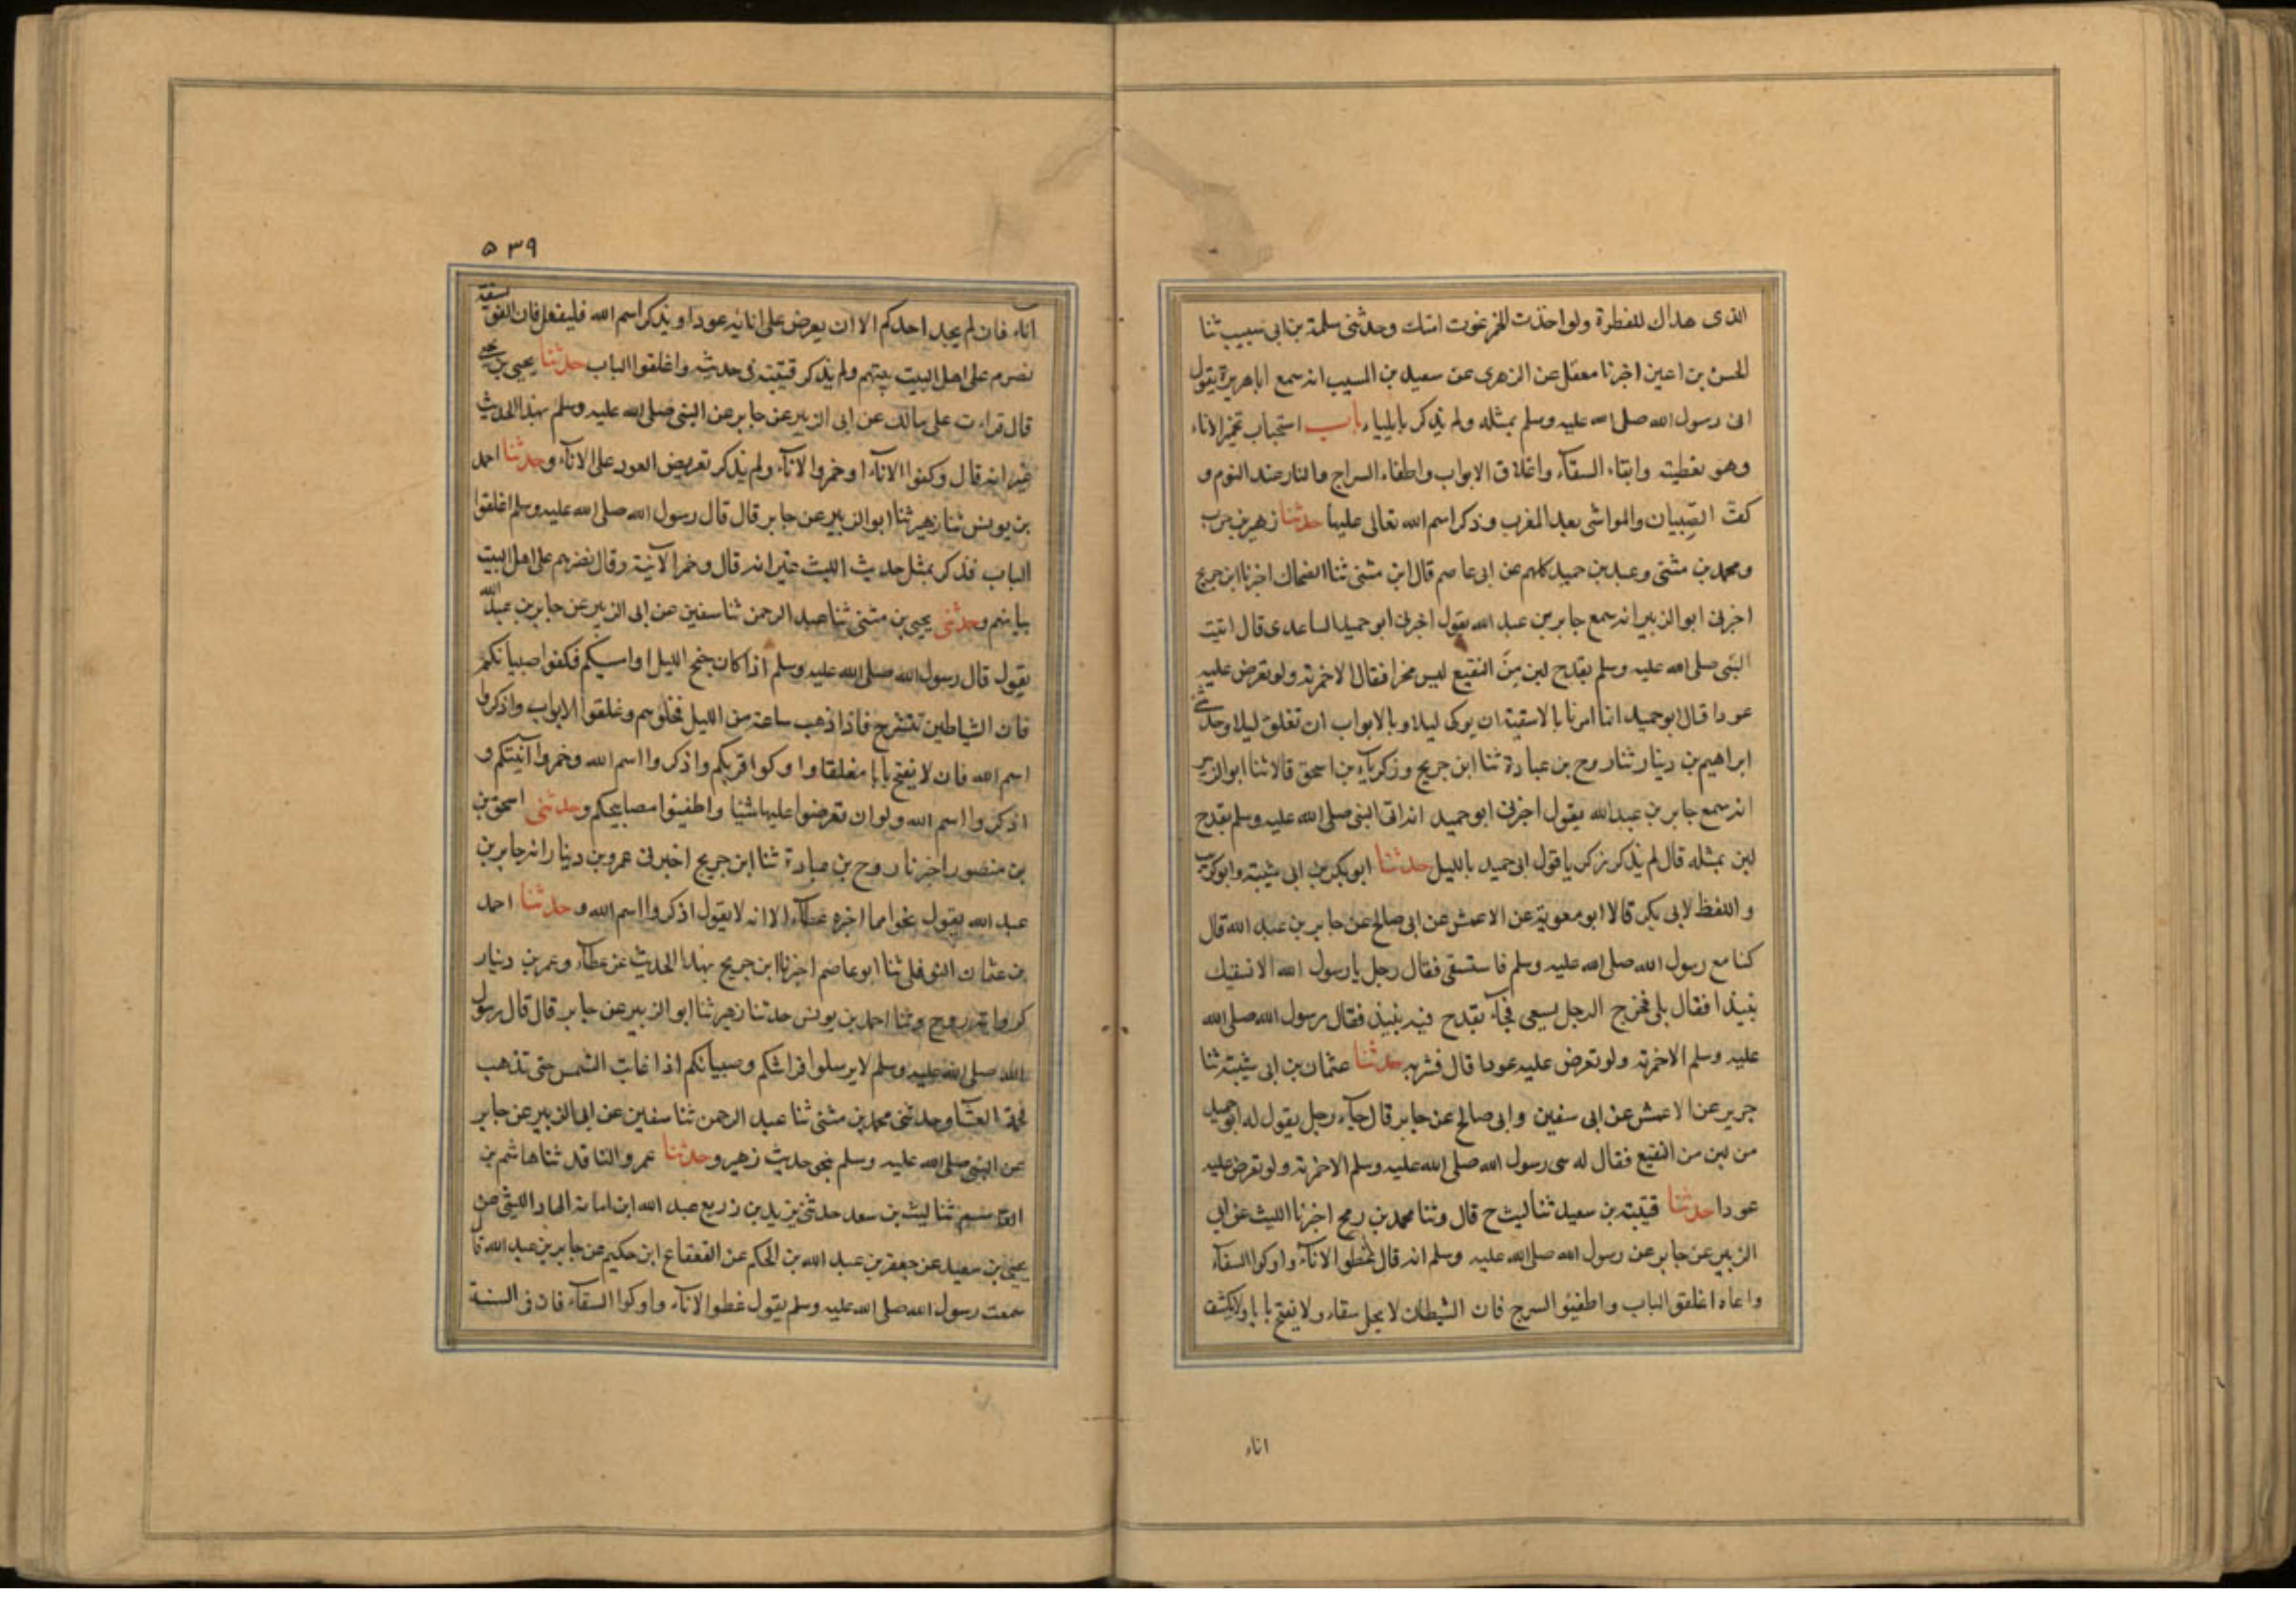 الذى هداك للفطرة ولو اخذت الخمر غوت امتك وحدثنى سلمة بن ابى شبيب ثنا
الحسن بن اعين اخبرنا معقل عن الزهرى عن سعيد بن المسيب انه سمع ابا هريرة يقول
اتى رسول الله صلى الله عليه وسلم بمثله ولم يذكر بايلياء باب استحباب تخمير الاناء
وهو تغطيته وايقاء السقاء واغلاق الابواب واطفاء السراج والنار عند النوم و
كفّ الصِّبيان والمواشى بعد المغرب وذكر اسم الله تعالى عليها حدثنا زهير بن حرب
ومحمد بن مثنى وعبد بن حميد كلهم عن ابى عاصم قال ابن مثنى ثنا الضحاك اخبرنا ابن جريج
اخبرنى ابو الزبير انه سمع جابر بن عبد الله يقول اخبرنى ابو حميد الساعدى قال اتيت
النبى صلى الله عليه وسلم بقدح لبن مِنَ النقيع ليس مخمرا فقال الا خمرته ولو تعرض عليه
عودا قال ابو حميد انما امرنا بالاسقية ان يوكى ليلا وبالابواب ان تغلق ليلا وحدثنى
ابراهيم بن دينار ثنا روح بن عبادة ثنا ابن جريج وزكرياء بن اسحق قالا ثنا ابو الزبير
انه سمع جابر بن عبد الله يقول اخبرنى ابو حميد انه اتى النبى صلى الله عليه وسلم بقدح
لبن بمثله قال لم يذكر زكريا قول ابى حميد بالليل حدثنا ابو بكر بن ابى شيبة وابو كريب
واللفظ لابى بكر قالا ابو معوية عن الاعمش عن ابى صالح عن جابر بن عبد الله قال
كنا مع رسول الله صلى الله عليه وسلم فاستسقى فقال رجل يا رسول الله الا نسقيك
نبيذا فقال بلى فخرج الرجل يسعى فجآء بقدح فيه نبيذ فقال رسول الله صلى الله
عليه وسلم الا خمرته ولو تعرض عليه عودا قال فشربه حدثنا عثمان بن ابى شيبة ثنا
جرير عن الاعمش عن ابى سفين وابى صالح عن جابر قال جآء رجل يقول له ابو حميد
من لبن من النقيع فقال له رسول الله صلى الله عليه وسلم الا خمرته ولو تعرض عليه
عودا حدثنا قتيبة بن سعيد ثنا ليث ح قال وثنا محمد بن رمح اخبرنا الليث عن ابى
الزبير عن جابر عن رسول الله صلى الله عليه وسلم انه قال غطوا الانآء واوكوا السقآء
اغلقوا الباب واطفيئو السرج فان الشيطان لا يحل سقاء ولا يفتح بابا ولا يكشف
اناء
٥٣٩
اناء فان لم يجد احدكم الا ان يعرض على انائه عودا ويذكر اسم الله فليفعل فان الفويسقة
تضرم على اهل البيت بيتهم ولم يذكر قتيبة فى حديثه واغلقوا الباب حدثنا يحيى بن يحيى
قال قراءت على مالك عن ابى الزبير عن جابر عن النبى صلى الله عليه وسلم بهذا الحديث
غير انه قال وكفوا الانآء او خمروا الانآء ولم يذكر تعريض العود على الانآء وحدثنا احمد
بن يونس ثنا زهير ثنا ابو الزبير عن جابر قال قال رسول الله صلى الله عليه وسلم اغلقوا
الباب فذكر بمثل حديث الليث غير انه قال وخمرا الآنية وقال تضرم على اهل البيت
ثيابهم وحدثنى يحيى بن مثنى ثنا عبد الرحمن ثنا سفين عن ابى الزبير عن جابر بن عبد الله
يقول قال رسول الله صلى الله عليه وسلم اذا كان جنح الليل او امسيتكم فكفوا صبيانكم
فان الشياطين تنتشر ح فاذا ذهب ساعة من الليل فخلوهم وغلقوا الابواب واذكروا
اسم الله فان لا يفتح بابا مغلقا واوكوا قربكم واذكروا اسم الله وخمروا آنيتكم و
اذكروا اسم الله ولو ان تعرضوا عليها شيئا واطفيئوا مصابيحكم وحدثنى اسحق بن
بن منصور اخبرنا روح بن عبادة ثنا ابن جريج اخبرنى عمرو بن دينار انه جابر بن
عبد الله يقول نحوا مما اخبره عطآء الا انه لا يقول اذكروا اسم الله وحدثنا احمد
بن عثمان النوفلى ثنا ابو عاصم اخبرنا ابن جريج بهذا الحديث عن عطآء وعمر بن دينار
كرواية روح وثنا احمد بن يونس حدثنا زهير ثنا ابو الزبير عن جابر قال قال رسول
الله صلى الله عليه وسلم لا يرسلوا فراشكم وصبيانكم اذا غابت الشمس حتى تذهب
فحمة العشآ وحدثنى محمد بن مثنى ثنا عبد الرحمن ثنا سفين عن ابى الزبير عن جابر
عن النبى صلى الله عليه وسلم بنحى حديث زهير وحدثنا عمرو الناقد ثنا هاشم بن
القاسم ثنا ليث بن سعد حدثنى يزيد بن عبد الله ابن اسامة الهاد الليثى عن
يحيى بن سعيد عن جعفر بن عبد الله بن الحكم عن القعقاع ابن حكيم عن جابر بن عبد الله قال
سمعت رسول الله صلى الله عليه وسلم يقول غطوا الانآء واوكوا السقآء فان فى السنة